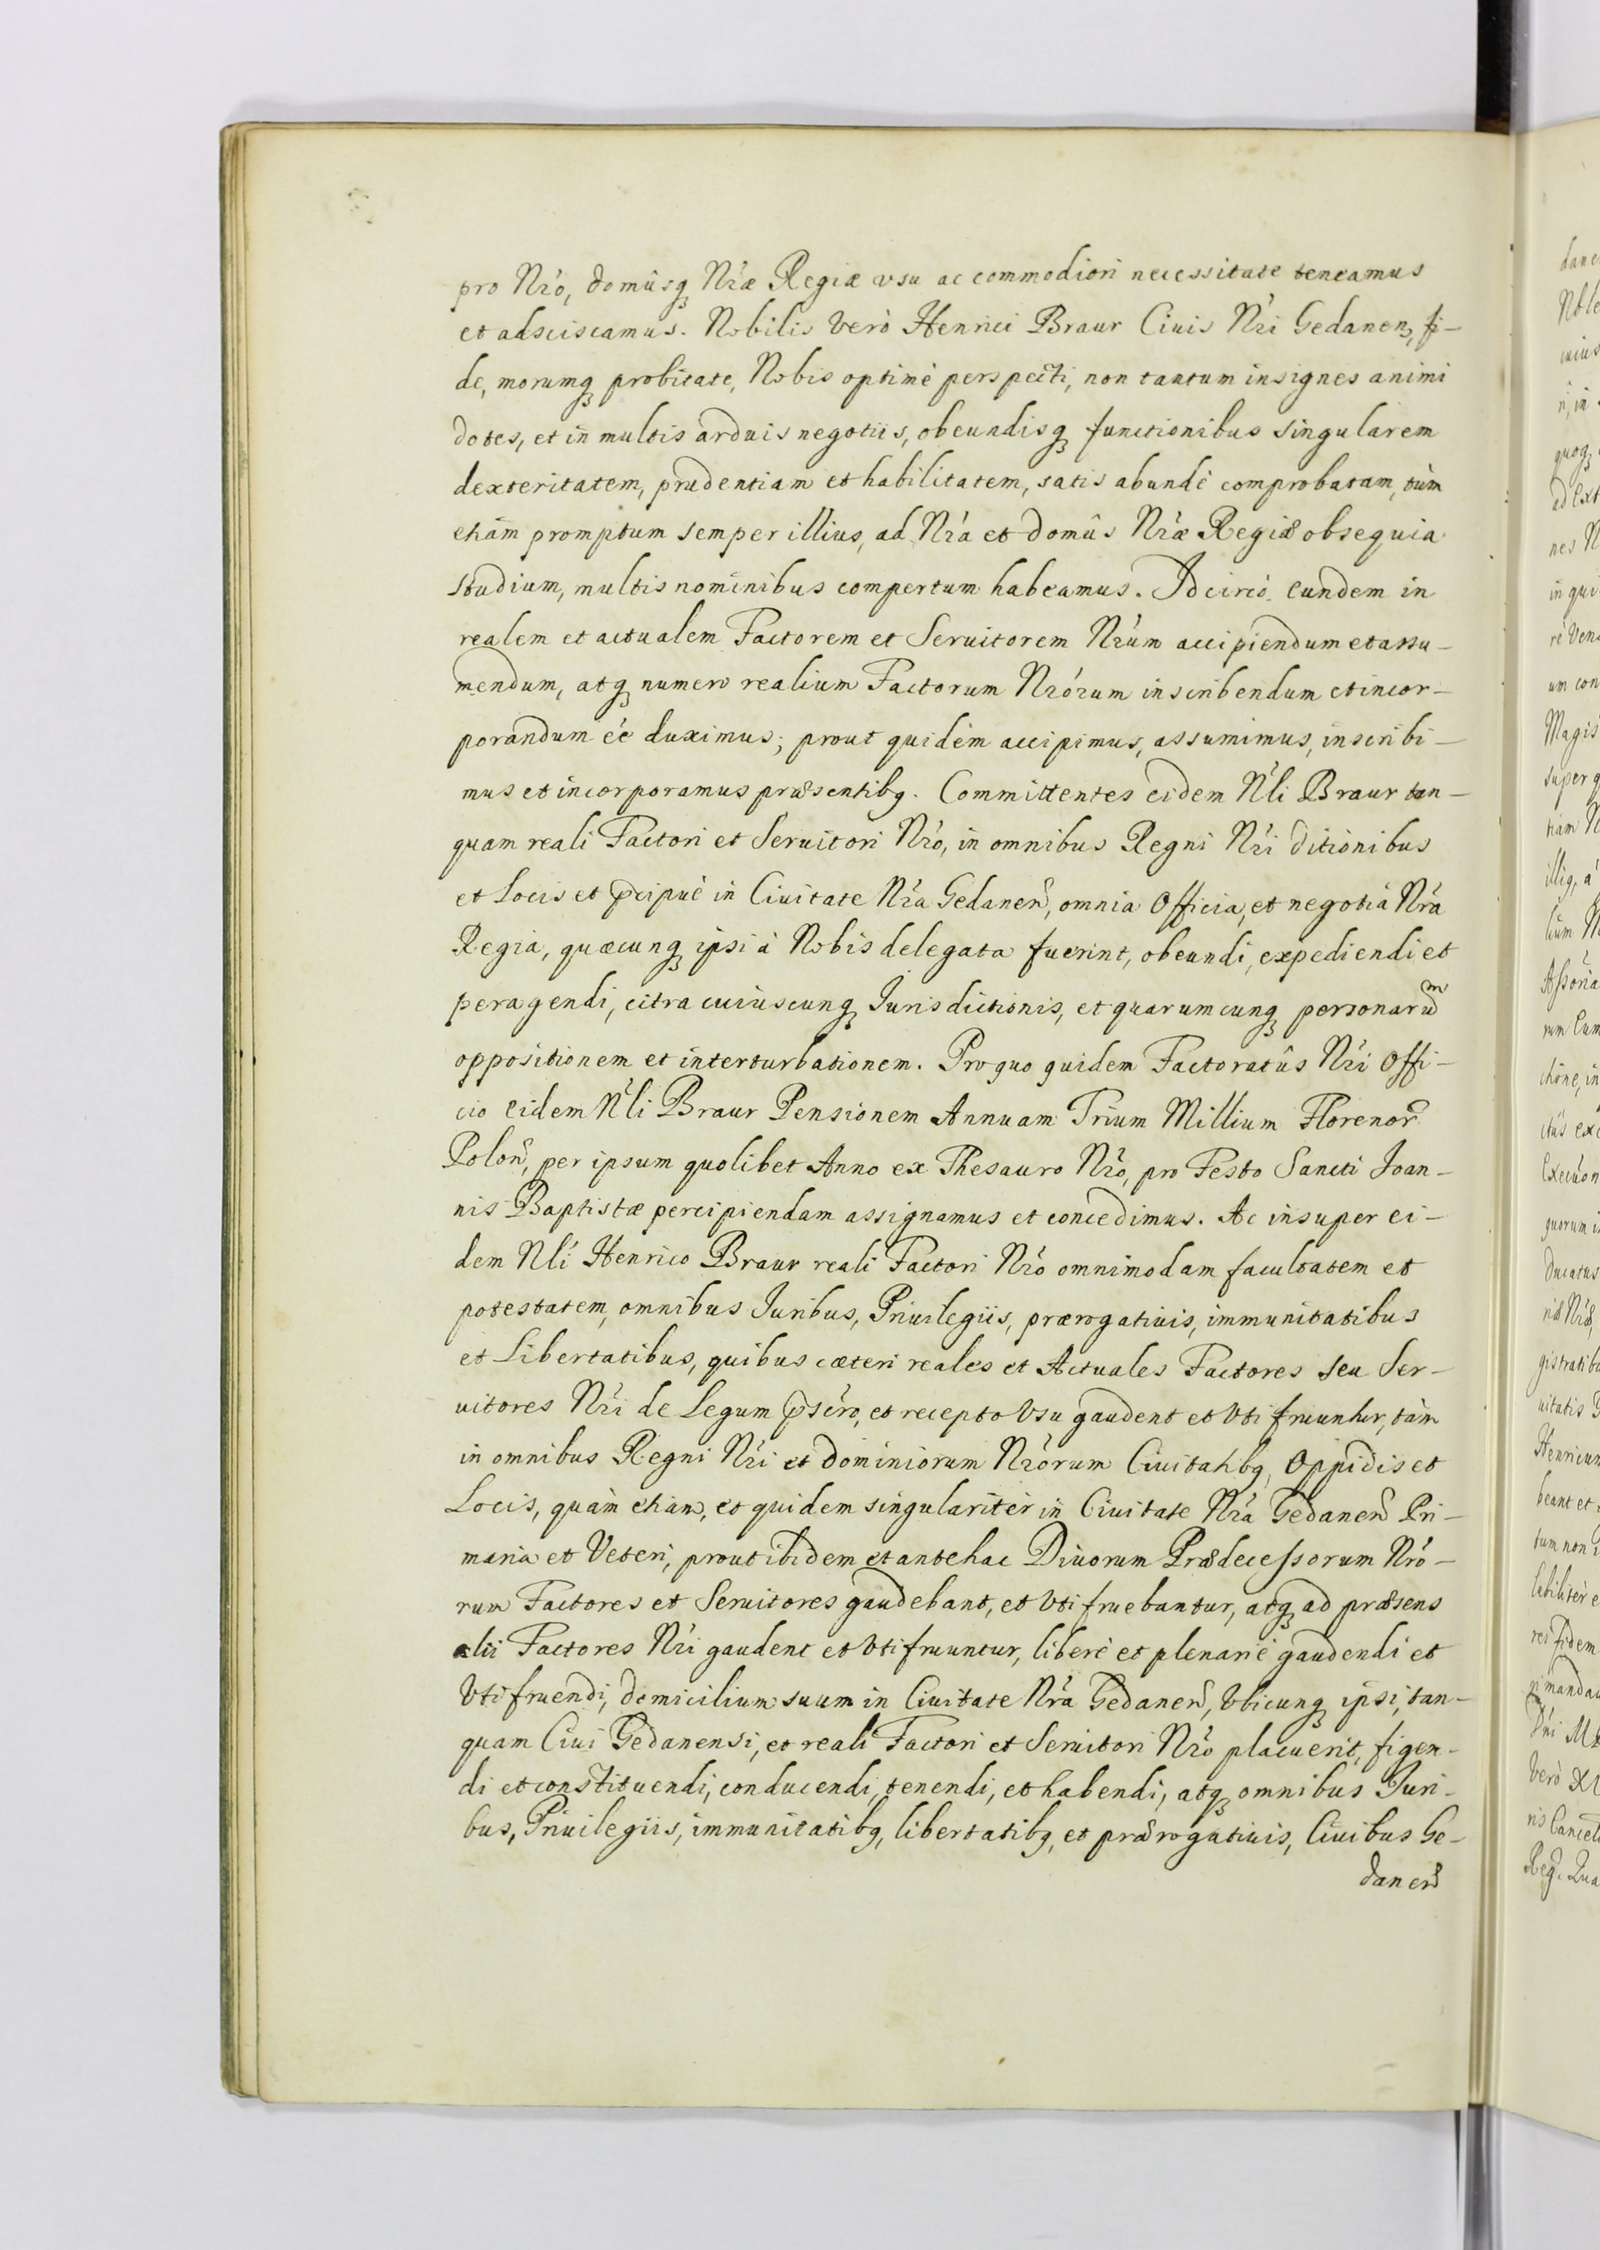 pro Nró, domûsq Nræ Regiæ vsu ac commodiori necessitate teneamus
et adsciscamus. Nobilis verò Henrici Braur Ciuis Nri Gedanen, fi-
de, morumq probitate, Nobis optimè perspecti, non tantum insignes animi
dotes, et in multis arduis negotiis, obeundisq functionibus singularem
dexteritatem, prudentiam et habilitatem, satis abundè comprobatam, tùm
etiam promptum semper illius, ad Nra et domûs Nræ Regiæ obsequia
studium, multis nominibus compertum habeamus. Idcircò eundem in
realem et actualem Factorem et Seruitorem Nrum accipiendum et assu-
mendum, atq numero realium Factorum Nrorum inscribendum et incor-
porandum éé duximus; prout quidem accipimus, assumimus, inscribi-
mus et incorporamus præsentibq. Committentes eidem Nli Braur tan-
quam reali Factori et Seruitori Nró, in omnibus Regni Nri ditionibus
et Locis et pcipuè in Ciuitate Nra Gedanen, omnia Officia, et negotia Nra
Regia, quæcunq ipsi à Nobis delegata fuerint, obeundi, expediendi et
peragendi, citra cuiuscunq Jurisdictionis, et quarumcunq personarum
oppositionem et interturbationem. Pro quo quidem Factoratûs Nri Offi-
cio eidem Nli Braur Pensionem Annuam Trium Millium Florenor
Polon, per ipsum quolibet Anno ex Thesauro Nró, pro Festo Sancti Joan-
nis Baptistæ percipiendam assignamus et concedimus. Ac insuper ei-
dem Nli Henrico Braur reali Factori Nró omnimodam facultatem et
potestatem, omnibus Juribus, Priuilegiis, prærogatiuis, immunitatibus
et Libertatibus, quibus cæteri reales et Actuales Factores seu Ser-
uitores Nri de Legum pscro, et recepto Vsu gaudent et Vti fruuntur, tàm
in omnibus Regni Nri et dominiorum Nrorum Ciuitatibq, Oppidis et
Locis, quàm etiam, et quidem singularitèr in Ciuitate Nra Gedanen Pri-
maria et Veteri, prout ibidem et antehac Diuorum Prædecessorum Nró-
rum Factores et Seruitores gaudebant, et Vti fruebantur, atq ad præsens
alii Factores Nri gaudent et Vti fruuntur, liberè et plenariè gaudendi et
Vti fruendi, domicilium suum in Ciuitate Nra Gedanen, Vbicunq ipsi, tan-
quam Ciui Gedanensi, et reali Factori et Seruitori Nró placuerit, figen-
di et constituendi, conducendi, tenendi, et habendi, atq omnibus Juri-
bus, Priuilegiis, immunitatibq, libertatibq, et prærogatiuis, Ciuibus Ge-
danen